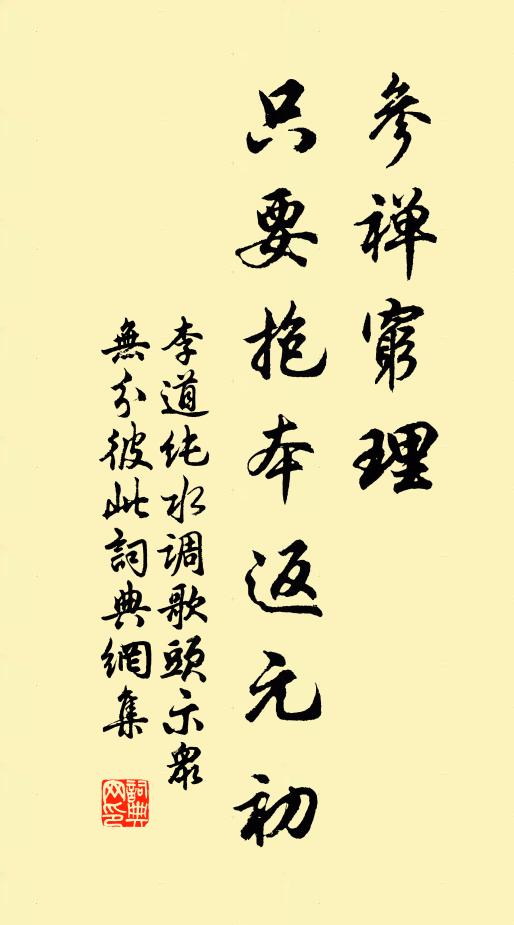 參禅窮理
只要抱本返元初
李道纯水调歌頭示衆
無分彼此詞典網集
詞典
网印